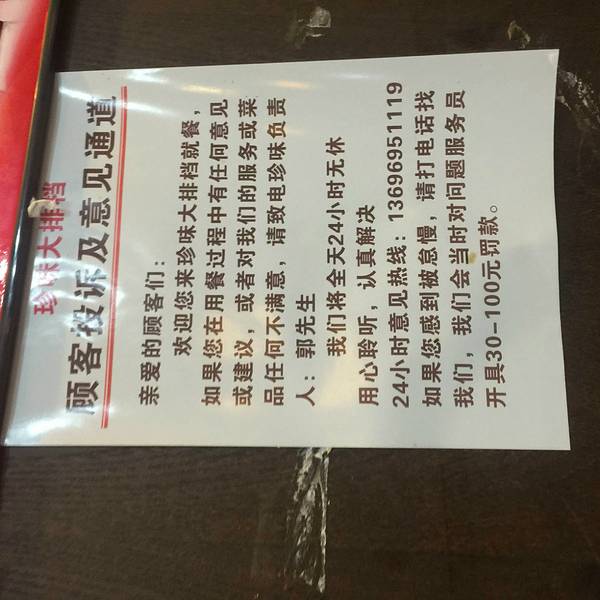 珍味大排档
顾客投诉及意见通道
亲爱的顾客们：
欢迎您来珍味大排档就餐，
如果您在用餐过程中有任何意见
或建议，或者对我们的服务或菜
品任何不满意，请致电珍味负责
人：郭先生
我们将全天24小时无休
用心聆听，认真解决
24小时意见热线：13696951119
如果您感到被怠慢，请打电话找
我们，我们会当时对问题服务员
开具30-100元罚款。